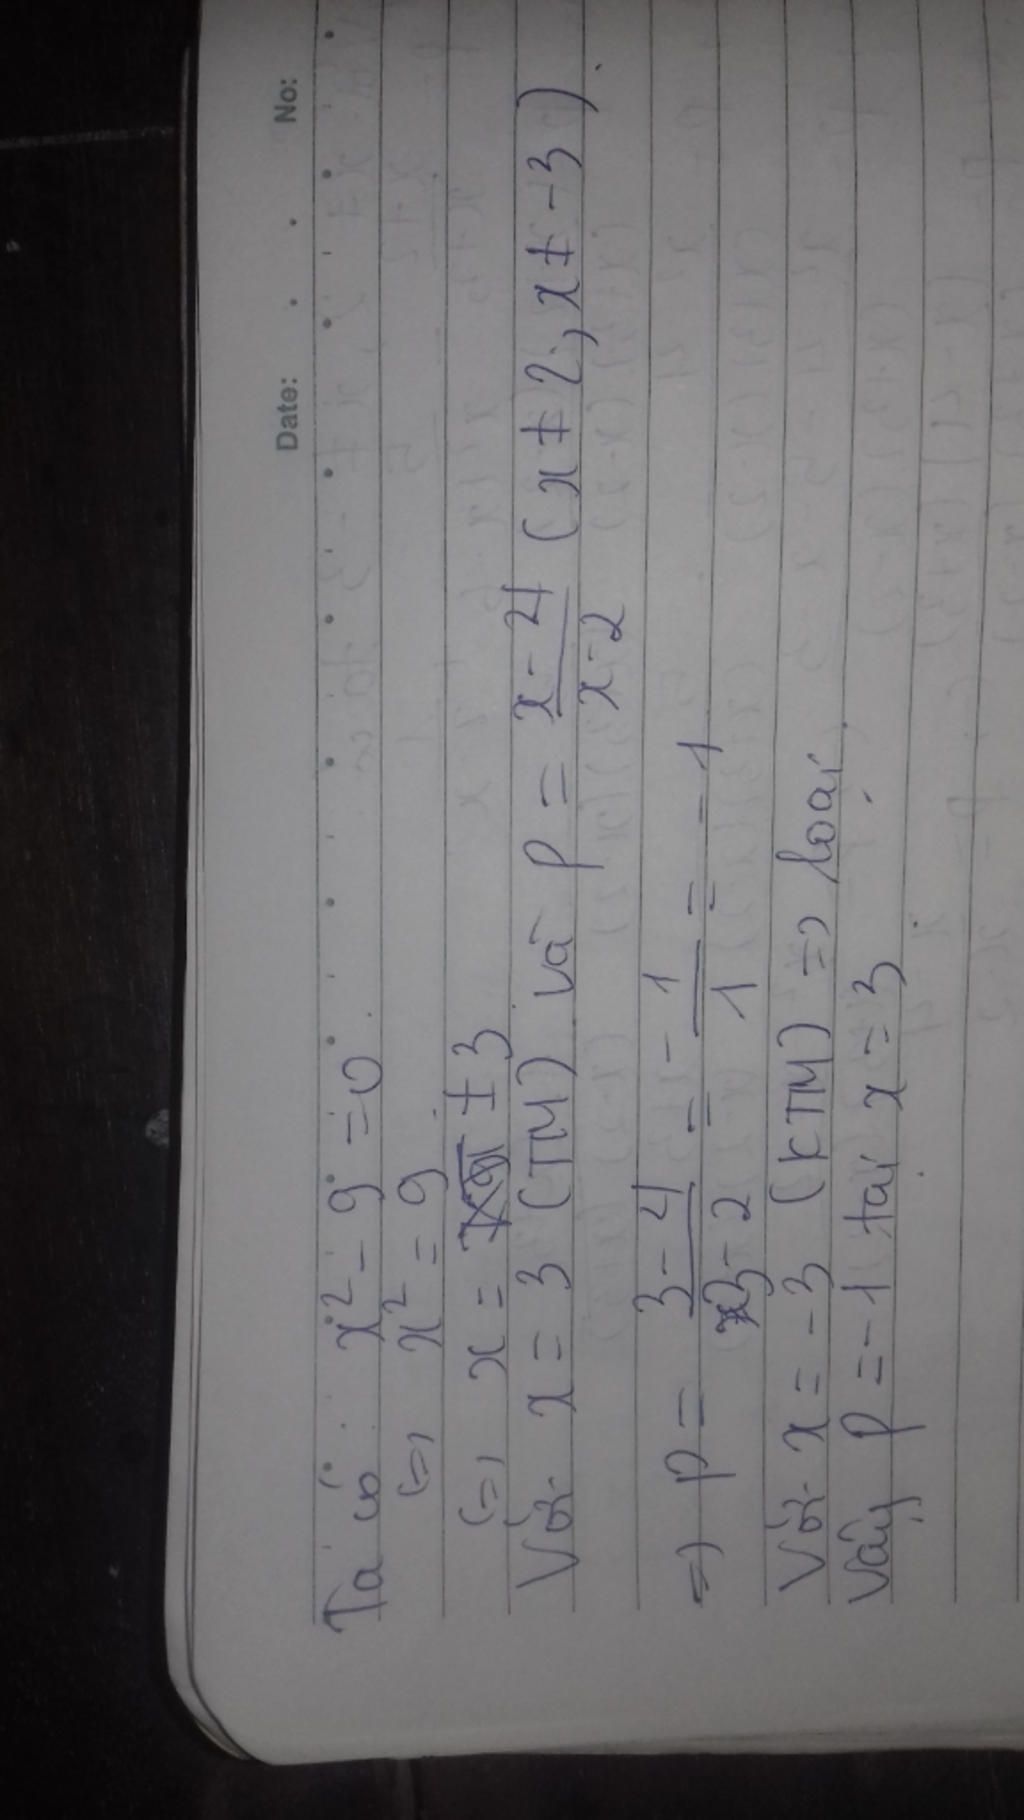 Date: No:
Ta có x² - 9 = 0
(=) x² = 9
(=) x = ± 3
Với x = 3 (TM) và P = \frac{x-4}{x-2} (x ≠ 2, x ≠ -3)
=> P = \frac{3-4}{3-2} = \frac{-1}{1} = -1
Với x = -3 (KTM) => loại
Vậy P = -1 tại x = 3